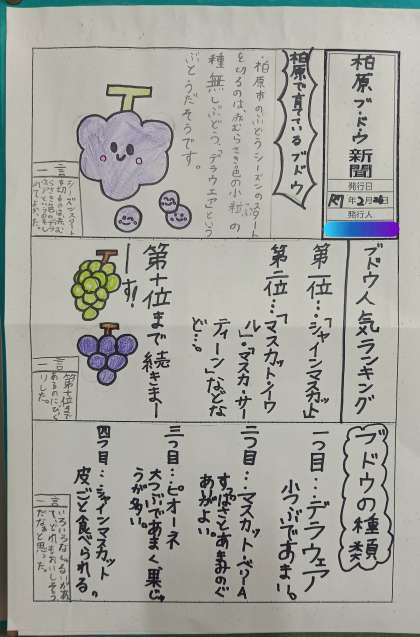 柏原ブドウ新聞
発行日
R7年2月26日
発行人
柏原で育ているブドウ
・柏原市のぶどうシーズンのスタート
を切るのは、赤むらさき色の小粒の
種無しぶどう、「デラウエア」という
ぶどうだそうです。
一言
ブドウ人気ランキング
第一位…「シャインマスカット」
第二位…「マスカット・イウ
ル」・「マスカ・サー
ティーン」などな
ど…。
第十位まで続きまー
す!
一言
第十位まで
あるのにびっく
りした。
ブドウの種類
一つ目…デラウェア
小つぶであまい。
二つ目…マスカットベリーA
すっぱさとあまみのぐ
あがよい。
三つ目…ピオーネ
大つぶであまく、果じゅ
うが多い。
四つ目…シャインマスカット
皮ごと食べられる。
一言
いろいろなしゅるいがあ
って、どれもおいしそう
だなぁと思った。